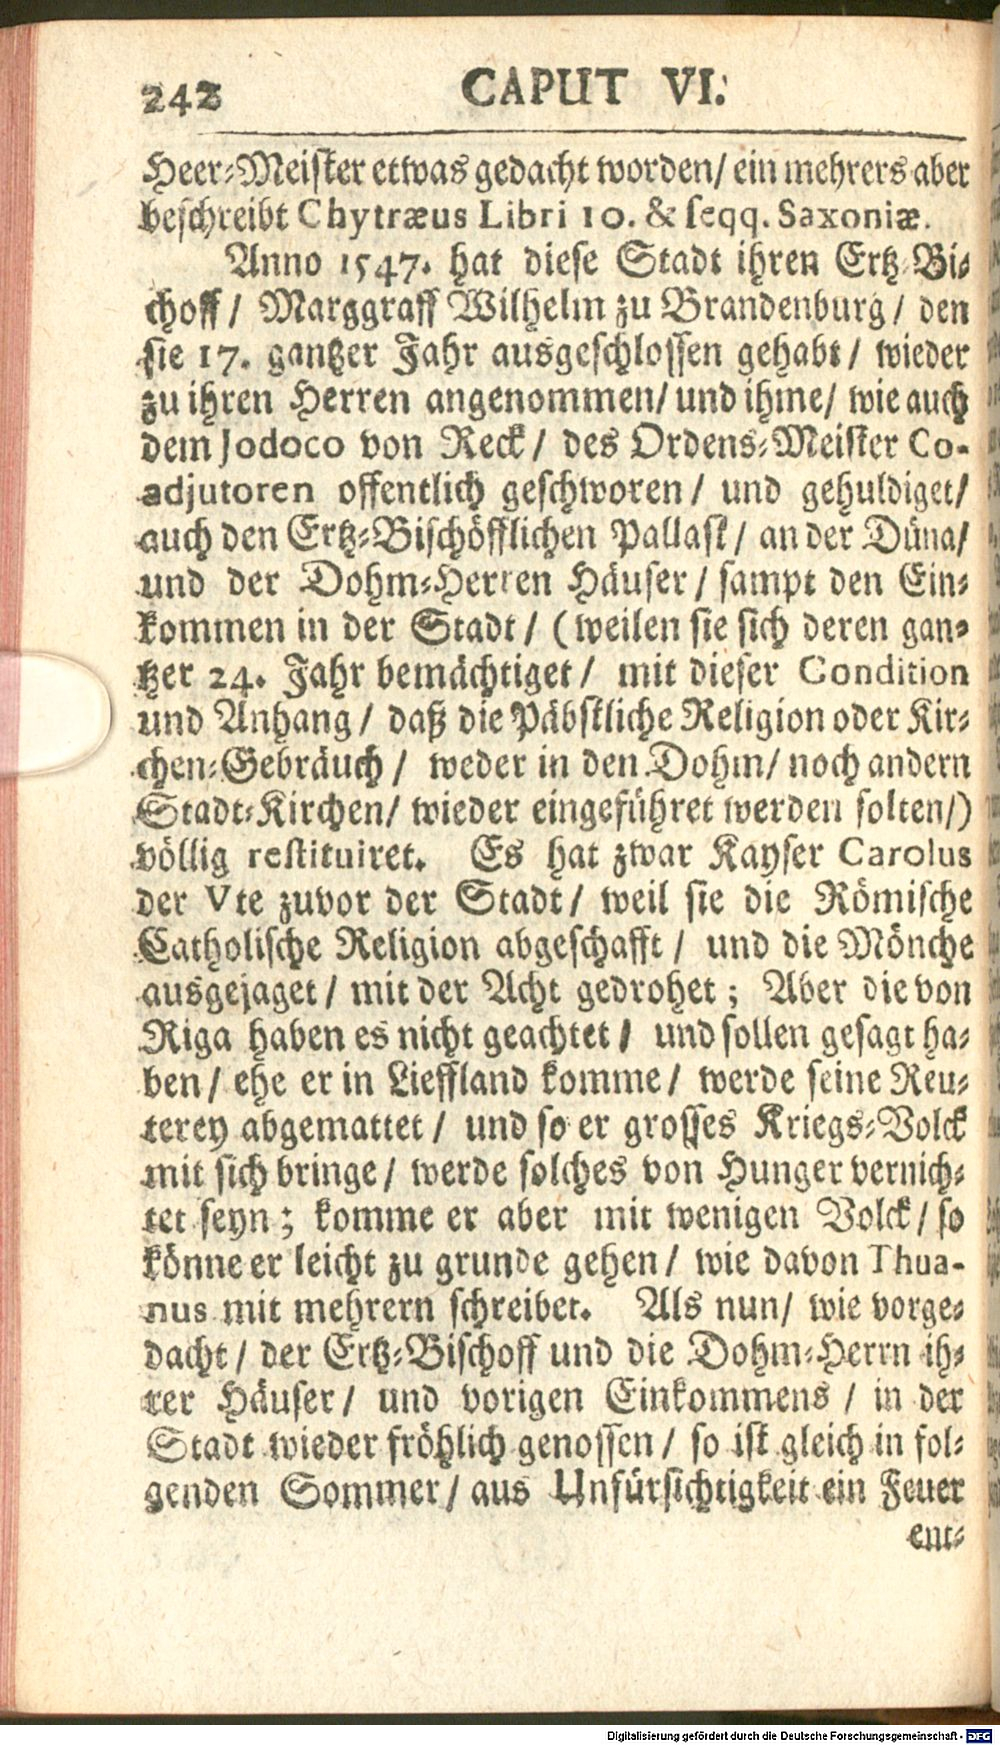 242 CAPUT VI.
Heer-Meister etwas gedacht worden/ ein mehrers aber
beschreibt Chytræus Libri 10. & seqq. Saxoniæ.
Anno 1547. hat diese Stadt ihren Ertz-Bi-
choff/ Marggraff Wilhelm zu Brandenburg/ den
sie 17. gantzer Jahr ausgeschlossen gehabt/ wieder
zu ihren Herren angenommen/ und ihme/ wie auch
dem Jodoco von Reck/ des Ordens-Meister Co-
adjutoren offentlich geschworen/ und gehuldiget/
auch den Ertz-Bischöfflichen Pallast/ an der Düna/
und der Dohm-Herren Häuser/ sampt den Ein-
kommen in der Stadt/ (weilen sie sich deren gan-
tzer 24. Jahr bemächtiget/ mit dieser Condition
und Anhang/ daß die Päbstliche Religion oder Kir-
chen-Gebräuch/ weder in den Dohm/ noch andern
Stadt-Kirchen/ wieder eingeführet werden solten/)
völlig restituiret. Es hat zwar Kayser Carolus
der Vte zuvor der Stadt/ weil sie die Römische
Catholische Religion abgeschafft/ und die Mönche
ausgejaget/ mit der Acht gedrohet; Aber die von
Riga haben es nicht geachtet/ und sollen gesagt ha-
ben/ ehe er in Lieffland komme/ werde seine Reu-
terey abgemattet/ und so er grosses Kriegs-Volck
mit sich bringe/ werde solches von Hunger vernich-
tet seyn; komme er aber mit wenigen Volck/ so
könne er leicht zu grunde gehen/ wie davon Thua-
nus mit mehrern schreibet. Als nun/ wie vorge-
dacht/ der Ertz-Bischoff und die Dohm-Herrn ih-
rer Häuser/ und vorigen Einkommens/ in der
Stadt wieder fröhlich genossen/ so ist gleich in fol-
genden Sommer/ aus Unfürsichtigkeit ein Feuer
ent-
Digitalisierung gefördert durch die Deutsche Forschungsgemeinschaft - DFG